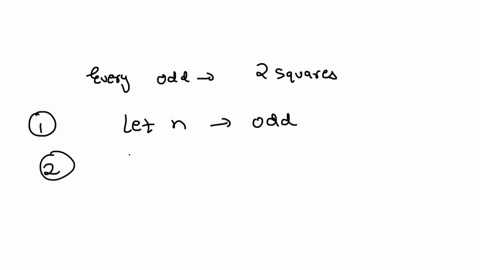 Every odd → 2 squares
① Let n → odd
②